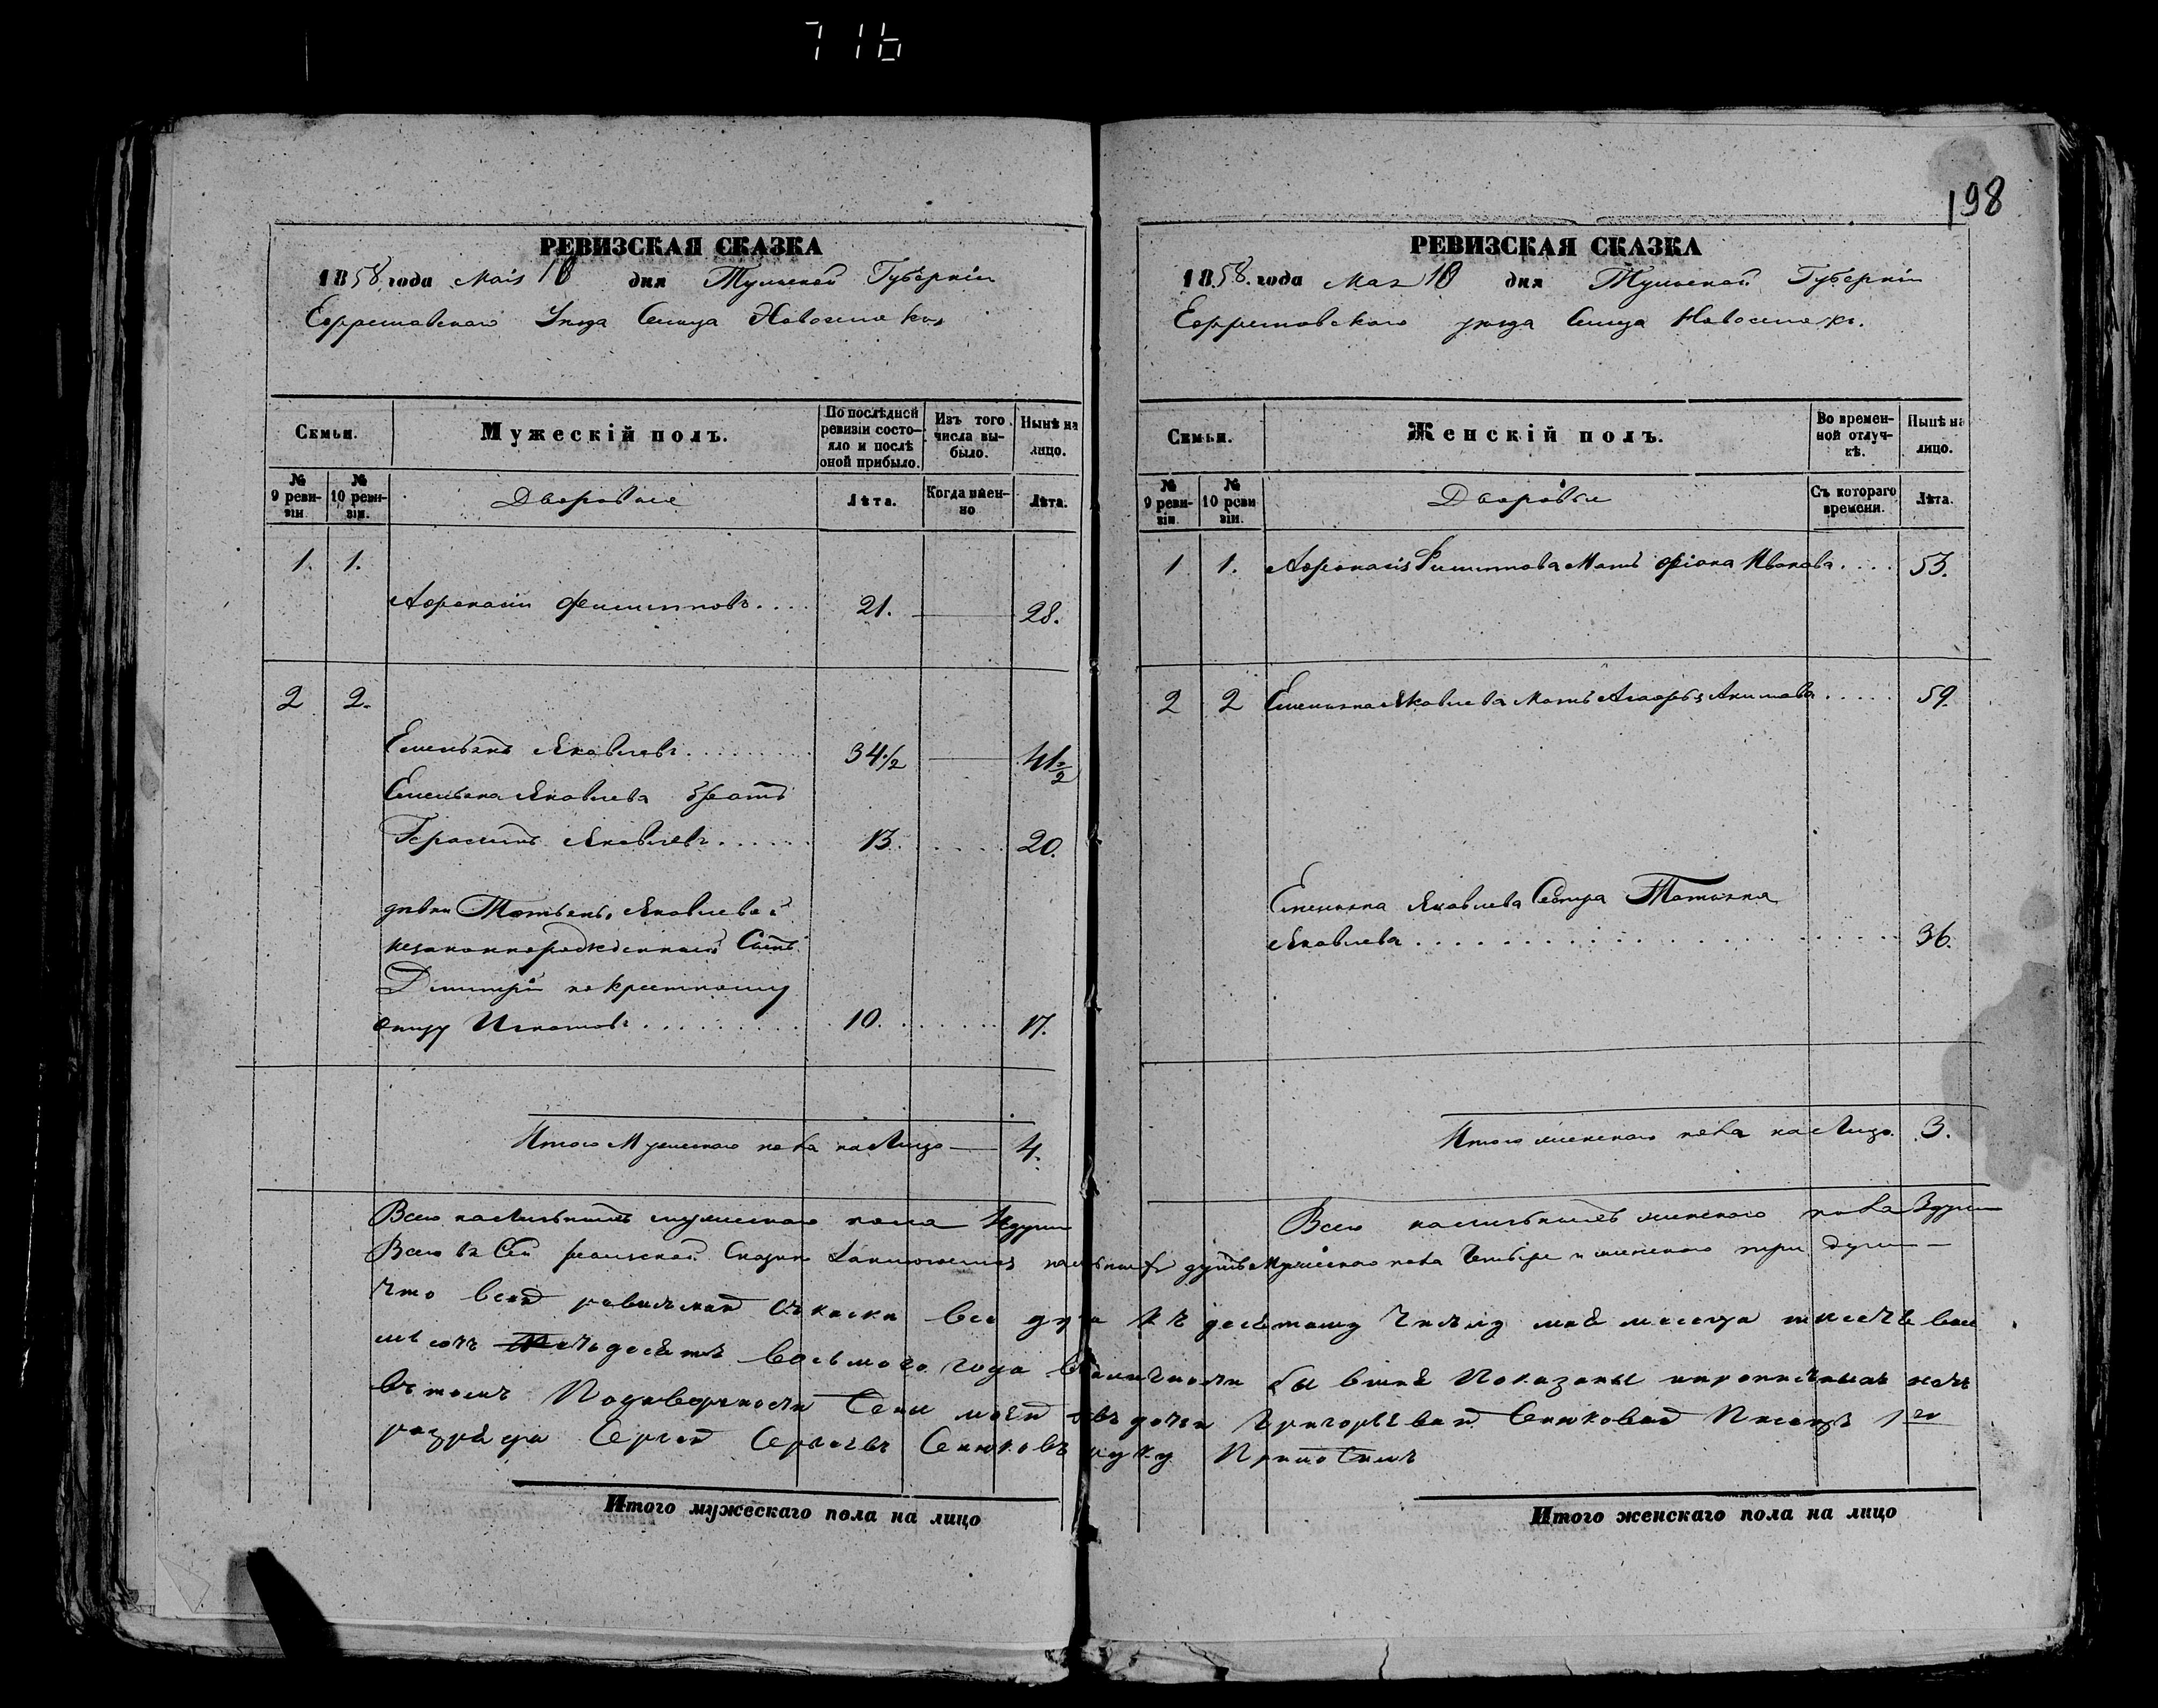 716
198
РЕВИЗСКАЯ СКАЗКА
1858 года Маія 10 дня Тульской Губерніи
Ефремовскаго Уезда Сельца Новоселокъ
Семьи.
Мужескій полъ.
По послѣдней ревизіи состояло и послѣ оной прибыло.
Изъ того числа выбыло.
Нынѣ на лицо.
№ 9 ревизіи.
№ 10 ревизіи.
Дворовые
Лѣта.
Когда именно
Лѣта.
1. 1.
Афонасій Филипповъ.... 21. 28.
2 2.
Емельянъ Яковлевъ........ 34½ 41½
Емельяна Яковлева братъ
Герасимъ Яковлевъ...... 13. 20.
девки Татьяны Яковлевой
незаконнорожденный Сынъ
Дмитрій по крестному
отцу Игнатовъ.......... 10. 17.
Итого Мужескаго пола на Лицо — 4.
РЕВИЗСКАЯ СКАЗКА
1858. года Мая 10 дня Тульской Губерніи
Ефремовскаго уезда Сельца Новоселокъ.
Семьи.
Женскій полъ.
Во временной отлучкѣ.
Нынѣ на лицо.
№ 9 ревизіи.
№ 10 ревизіи.
Дворовые
Съ котораго времени.
Лѣта.
1 1. Афонасія Филиппова Мать Ивановa.... 53.
2 2 Емельяна Яковлева мать Акимова..... 59.
Емельяна Яковлева Сестра Татьяна
Яковлева.......... 36.
Итого женскаго пола на Лицо. 3.
Всего наличныхъ мужескаго пола 4 души
Всего наличныхъ женскаго пола 3 души
Всего въ Сей ревизской Сказке наличныхъ душъ Мужескаго пола Четыре и женскаго три души —
Что все душа къ десятому числу мая месеца тысеча
десять восьмого года бы вшие показаны и нетъ
въ томъ Григорьевой Сенюковой Писецъ 1го
разряда Сергей Сергеевъ Сенюковъ руку Приложилъ
Итого мужескаго пола на лицо
Итого женскаго пола на лицо